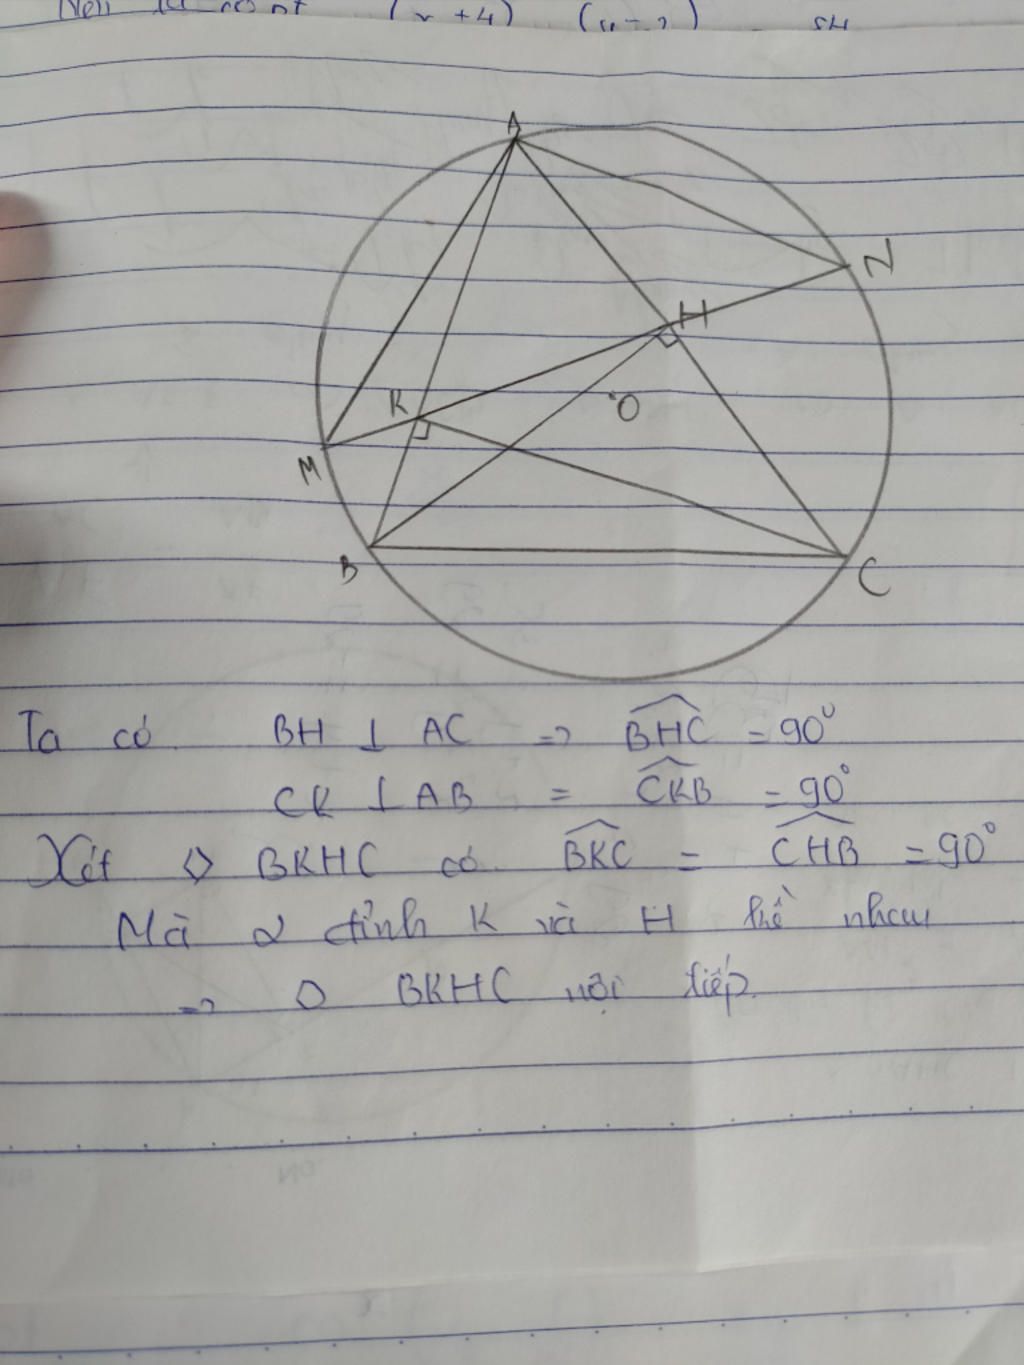 (x+4)
A
N
H
K
O
M
B
C
Ta có BH ⊥ AC => \widehat{BHC} = 90°
CK ⊥ AB = \widehat{CKB} = 90°
Xét ◊ BKHC có \widehat{BKC} = \widehat{CHB} = 90°
Mà 2 đỉnh K và H kề nhau
=> ◊ BKHC nội tiếp.